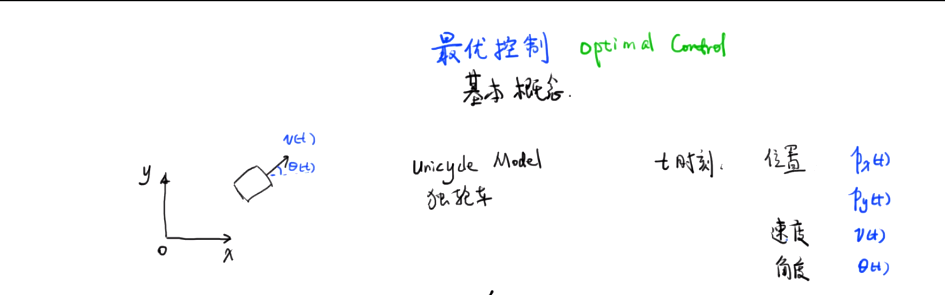 最优控制 Optimal Control
基本概念.
v(t)
θ(t)
y
o
x
Unicycle Model
独轮车
t时刻. 位置 px(t)
py(t)
速度 v(t)
角度 θ(t)